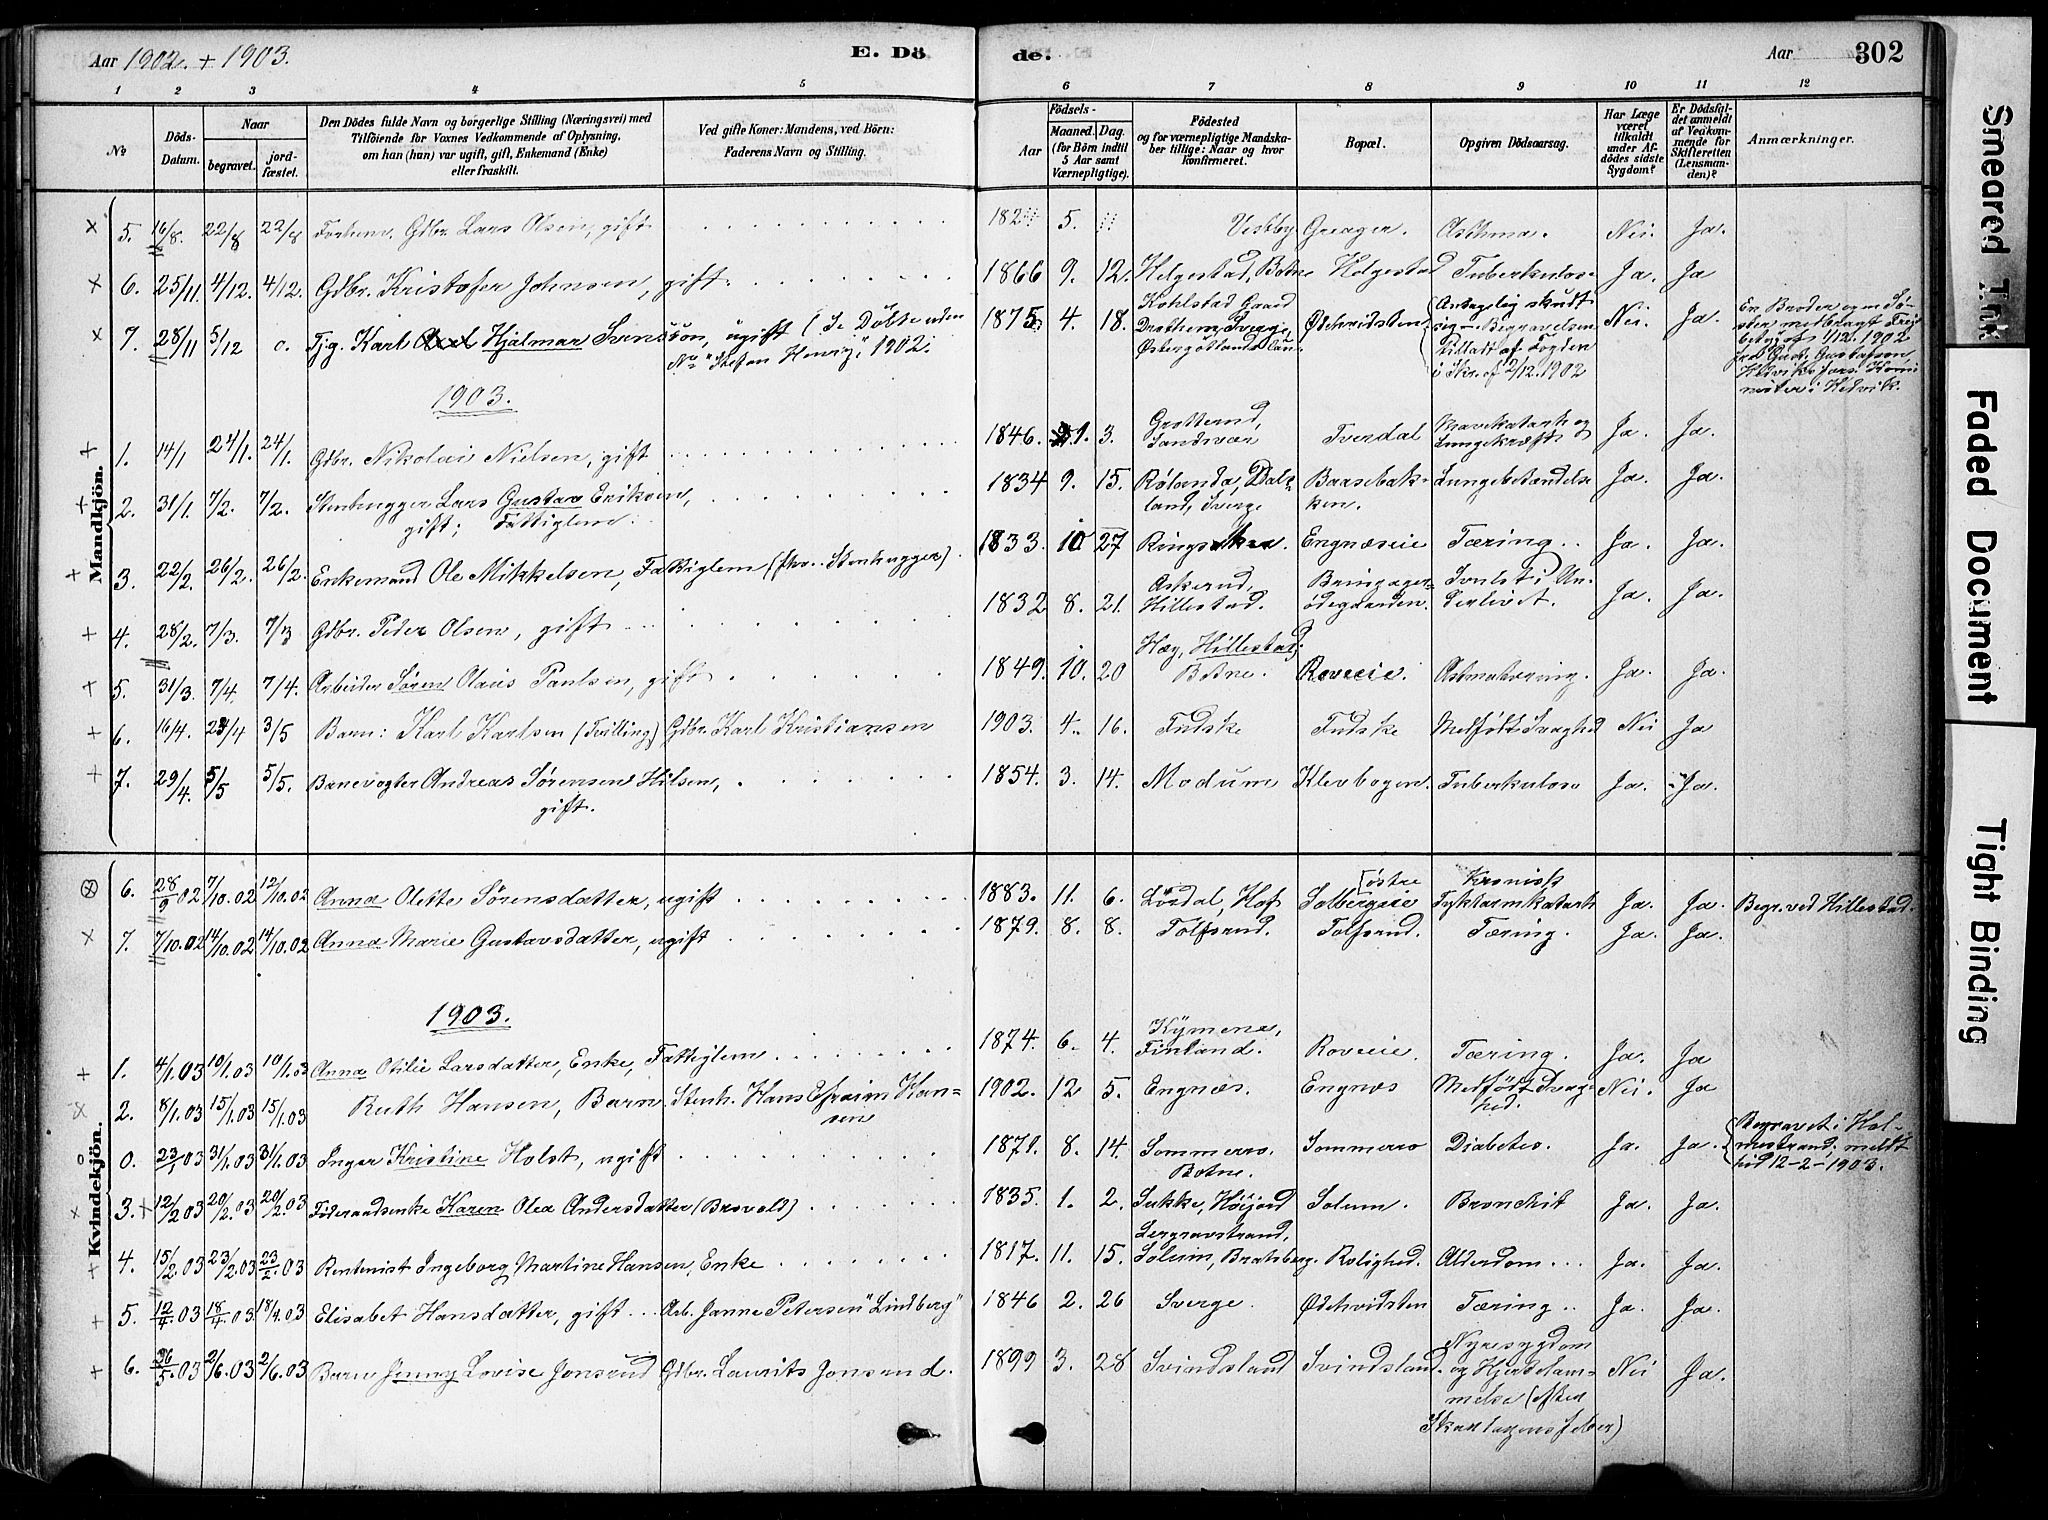 Aar 1902 + 1903.
E. Dö
de.
Aar
302
1 2 3 4 5 6 7 8 9 10 11 12
No
Döds-Datum.
Naar
begravet.
jord-fæstet.
Den Dödes fulde Navn og borgerlige Stilling (Næringsvei) med
Tilföiende for Voxnes Vedkommende af Oplysning,
om han (hun) var ugift, gift, Enkemand (Enke)
eller fraskilt.
Ved gifte Koner: Mandens, ved Börn:
Faderens Navn og Stilling.
Födsels-
Aar
Maaned. Dag.
(for Börn indtil
5 Aar samt
Værnepligtige).
Födested
og for værnepligtige Mandska-
ber tillige: Naar og hvor
konfirmeret.
Bopæl.
Opgiven Dödsaarsag.
Har Læge
været
tilkaldt
under Af-
dödes sidste
Sygdom?
Er Dödsfal-
det anmeldt
af Vedkom-
mende for
Skifteretten
(Lensman-
den)?
Anmærkninger.
Mandkjön.
5. 16/8. 22/8 22/8 Gdbr. Lars Olsen, gift 182 5. Vestby Greager. Asthma. Nei. Ja.
6. 25/11. 4/12. 4/12. Gdbr. Kristofer Johnsen, gift. 1866 9. 12. Helgestad, Botne Helgestad Tuberkulose Ja. Ja
7. 28/11 5/12 0. Tjg. Karl Axel Hjalmar Svensson, ugift (Se Döbte uden
No "Stefan Henrig", 1902.
1875 4. 18. Östergötlands Län. Ødehvidsten Antagelig skudt
sig - Begravelsen
tilladt af Fogden
i Skr. af 2/12. 1902
Nei. Ja.
En Broder og en Sö-
ster medbragt
1/12. 1902
1903.
1. 14/1 24/1. 24/1. Gdbr. Nikolai Nielsen, gift 1846. 1. 3. Grotterud,
Sandsvær Tverdal Mavekatarh og
Lungekræft Ja. Ja.
2. 31/1 7/2. 7/2. Stenhugger Lars Gustav Eriksen,
gift; Fattiglem.
1834 9. 15. Rølanda, Dals-
land, Sverge Baasebak-
ken. Lungebetændelse Ja. Ja.
3. 22/2. 26/2. 26/2. Enkemand Ole Mikkelsen, Fattiglem (før. Stenhugger). 1833. 10 27 Ringsaker. Engnæseie Tæring. Ja. Ja.
4. 28/2. 7/3. 7/3 Gdbr. Peder Olsen, gift 1832 8. 21. Askerud,
Hillestad. Bringager-
ødegaarden. Svulst i Un-
derlivet. Ja. Ja.
5. 31/3. 7/4. 7/4. Arbeider Søren Olaus Paulsen, gift 1849. 10. 20 Hæg, Hillestad,
Botne. Roveeie. Astmatæring. Ja. Ja.
6. 16/4. 23/4 3/5 Barn: Karl Karlsen (Tvilling) Gdbr. Karl Kristiansen 1903. 4. 16. Fudske Fudske Medfödt Svaghed Nei Ja
7. 29/4. 5/5 5/5. Banevogter Andreas Sørensen Hilsen,
gift.
1854. 3. 14. Modum Klevbogen. Tuberkulose Ja. Ja.
Kvindekjön.
6. 28/9 02 7/10.02 12/10.02 Anna Olette Sörensdatter, ugift 1883. 11. 6. Lösdal, Hof [østre
Solbergeie Kronisk
Tyktarmkatarh Ja. Ja. Begr. ved Hillestad.
7. 7/10.02 14/10.02 14/10.02 Anna Marie Gustavsdatter, ugift 1879. 8. 8. Tolfsrud. Tolfsrud. Tæring. Ja. Ja.
1903.
1. 4/1.03 10/1.03 10/1.03 Anna Otilie Larsdatter, Enke, Fattiglem 1874. 6. 4. Kymene,
Finland. Roveeie. Tæring. Ja. Ja
2. 8/1.03 15/1.03 15/1.03 Ruth Hansen, Barn Stenh. Hans Efraim Han-
sen 1902. 12 5. Engnæs. Engnæs Medfödt Svag-
hed. Nei. Ja
0. 23/1 03 31/1.03 31/1.03 Inger Kristine Holst, ugift 1871. 8. 14. Sommerro.
Botne. Sommerro Diabetes. Ja. Ja. Begravet i Hol-
mestrand, meldt
hid 12-2-1903.
3. 12/2 03 20/2.03 20/2.03 Föderaadsenke Karen Olea Andersdatter (Brovold) 1835. 1. 2. Sukke, Höijord Solum. Bronchit Ja. Ja.
4. 15/2.03 23/2.03 23/2.03 Rentenist Ingeborg Martine Hansen, Enke 1817. 11. 15. Lergravstrand,
Solum, Bratsberg. Rolighed. Alderdom... Ja. Ja.
5. 12/4.03 18/4.03. 18/4.03 Elisabet Hansdatter, gift... Arb. Janne Petersen "Lindberg" 1846 2. 26 Sverge. Ødehvidsten Tæring.. Ja. Ja.
6. 26/5.03 2/6.03 2/6.03 Barn Jenny Lovise Jonsrud Gdbr. Laurits Jonsrud. 1899 3. 28 Svindsland Svindsland. Nyresygdom
og Hjertelam-
melse (efter
Skarlagensfeber) Nei Ja.
Smeared Ink
Faded Document
Tight Binding